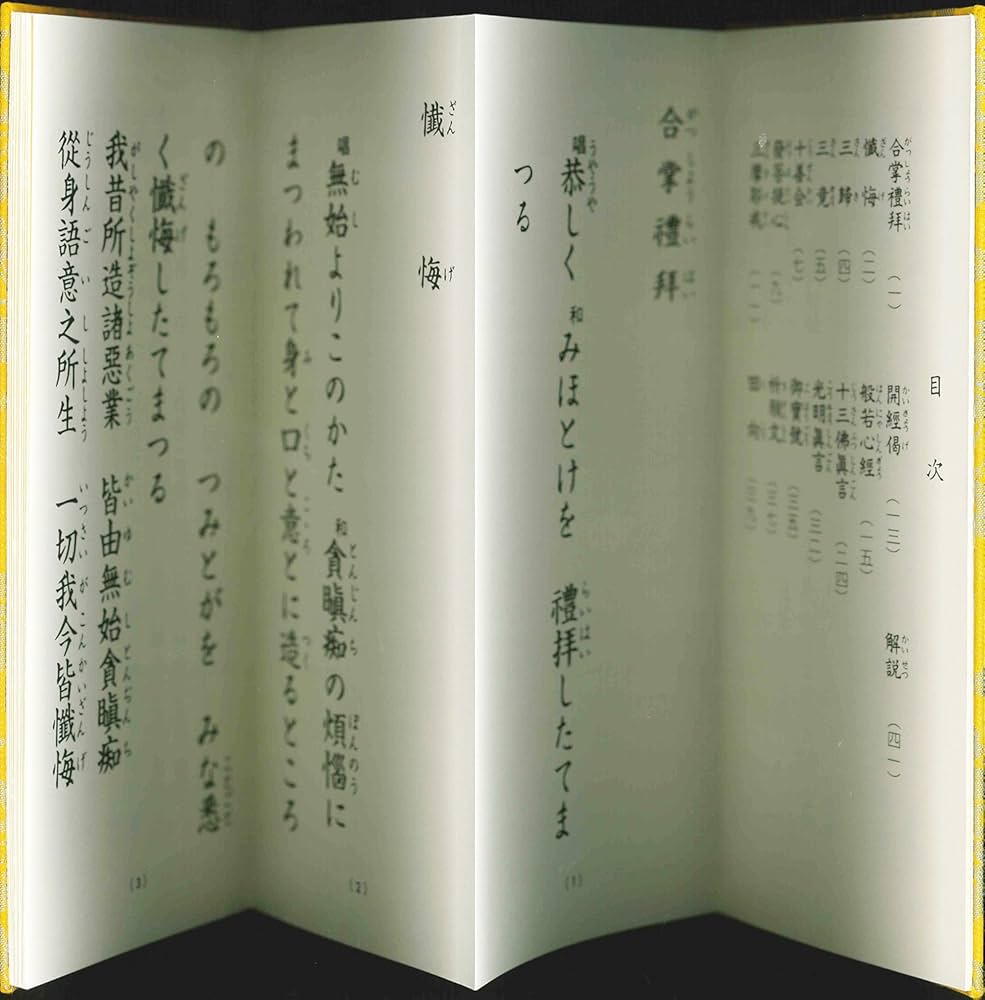 目次
合掌禮拜 (一)
懺悔 (二)
三歸 (四)
三竟 (五)
十善会 (七)
發菩提心 (九)
三摩耶戒 (一一)
開經偈 (一三)
般若心經 (一五)
十三佛眞言 (二四)
光明眞言 (三二)
御寶號 (三三)
祈願文
回向
解説 (四一)
合掌禮拜
唱 恭しく 和 みほとけを 禮拜したてま
つる
(1)
懺悔
唱 無始よりこのかた 和 貪瞋痴の煩惱に
まつわれて身と口と意とに造るところ
(2)
の もろもろの つみとがを みな悉
く懺悔したてまつる
我昔所造諸惡業 皆由無始貪瞋痴
從身語意之所生 一切我今皆懺悔
(3)